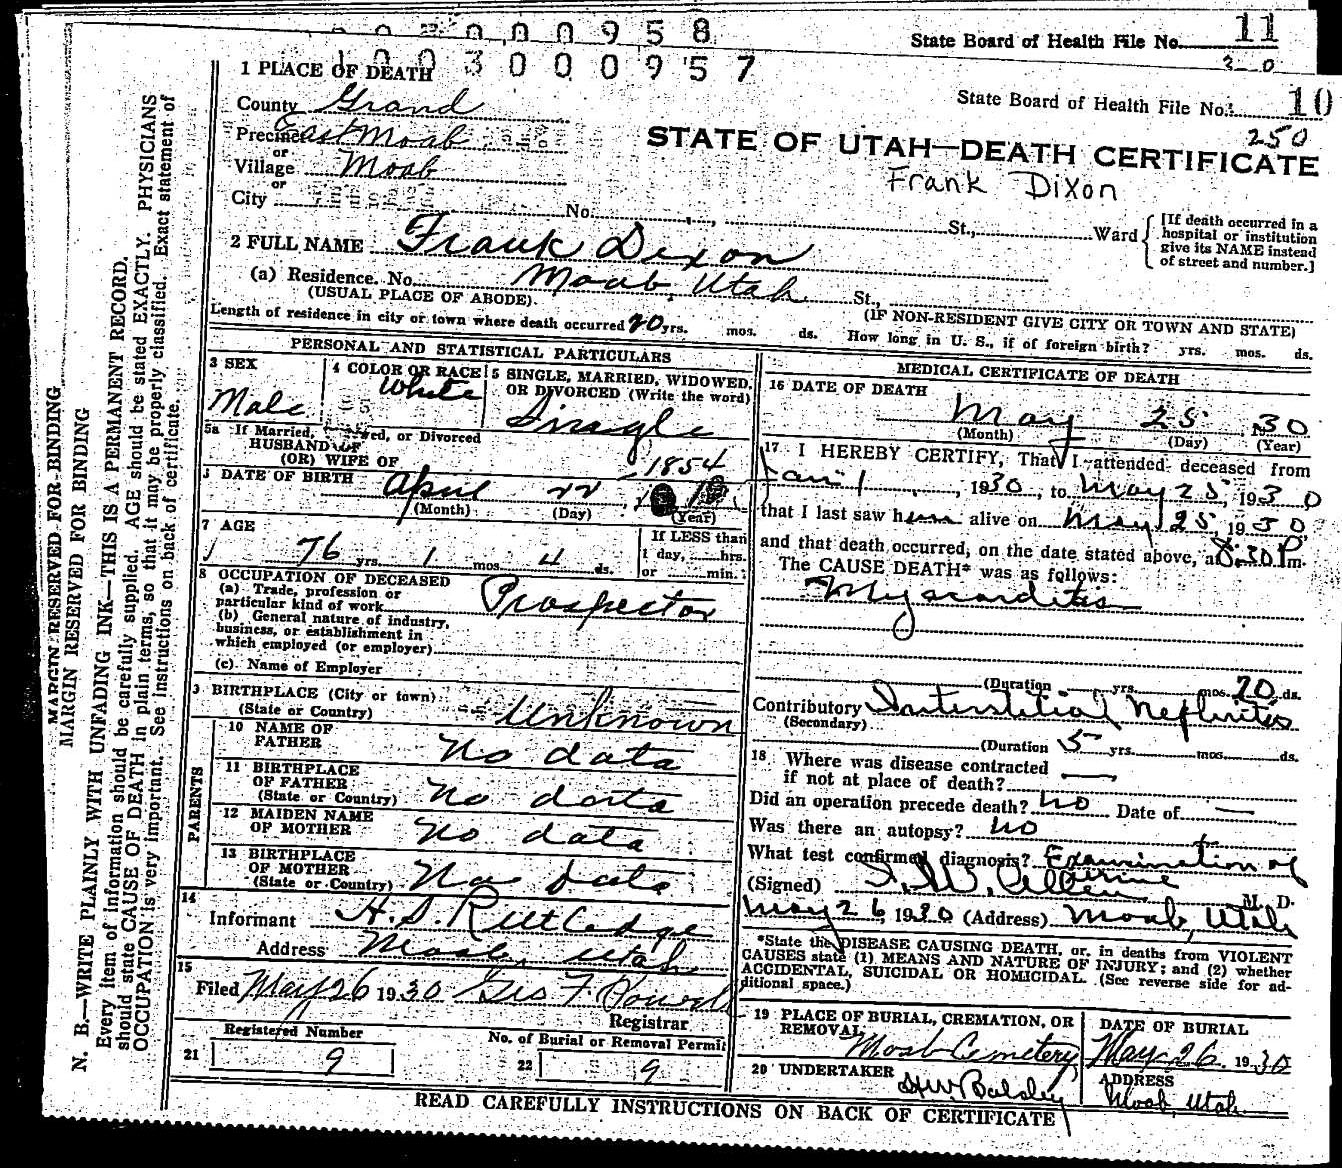 0 0 0 9 5 8
State Board of Health File No. 11
1 0 0 3 0 0 0 9 5 7
1 PLACE OF DEATH
State Board of Health File No. 10
County Grand
250
Precinct East Moab
STATE OF UTAH—DEATH CERTIFICATE
or
Village Moab
Frank Dixon
or
City No. St., Ward
[If death occurred in a
hospital or institution
give its NAME instead
of street and number.]
2 FULL NAME Frank Dixon
(a) Residence. No. Moab, Utah St.,
(USUAL PLACE OF ABODE).
(IF NON-RESIDENT GIVE CITY OR TOWN AND STATE)
Length of residence in city or town where death occurred 20 yrs. mos. ds. How long in U. S., if of foreign birth? yrs. mos. ds.
PERSONAL AND STATISTICAL PARTICULARS
3 SEX
Male
4 COLOR OR RACE
White
5 SINGLE, MARRIED, WIDOWED,
OR DIVORCED (Write the word)
Single
5a If Married, Widowed, or Divorced
HUSBAND OF
(OR) WIFE OF
1854
DATE OF BIRTH April 22
(Month) (Day) (Year)
7 AGE
76 yrs. 1 mos. 4 ds.
If LESS than
1 day, hrs.
or min.
8 OCCUPATION OF DECEASED
(a) Trade, profession or
particular kind of work Prospector
(b) General nature of industry,
business, or establishment in
which employed (or employer)
(c) Name of Employer
9 BIRTHPLACE (City or town)
(State or Country) Unknown
PARENTS
10 NAME OF
FATHER No data
11 BIRTHPLACE
OF FATHER
(State or Country) No data
12 MAIDEN NAME
OF MOTHER No data
13 BIRTHPLACE
OF MOTHER
(State or Country) No data
14
Informant H. S. Rutledge
Address Moab, Utah
15
Filed May 26 1930 Geo F. Powell
Registrar
Registered Number
21 9
No. of Burial or Removal Permit
22 9
MEDICAL CERTIFICATE OF DEATH
16 DATE OF DEATH
May 25 1930
(Month) (Day) (Year)
17 I HEREBY CERTIFY, That I attended deceased from
Jan 1, 1930, to May 25, 1930
that I last saw him alive on May 25 1930,
and that death occurred, on the date stated above, at 8:30 P.m.
The CAUSE DEATH* was as follows:
Myocarditis
(Duration yrs. mos. 20 ds.
Contributory Interstitial Nephritis
(Secondary)
(Duration 5 yrs. mos. ds.
18 Where was disease contracted
if not at place of death? —
Did an operation precede death? no Date of —
Was there an autopsy? no
What test confirmed diagnosis? Examination of
urine
(Signed) I. W. Allen M. D.
May 26, 1930 (Address) Moab, Utah
*State the DISEASE CAUSING DEATH, or, in deaths from VIOLENT
CAUSES state (1) MEANS AND NATURE OF INJURY; and (2) whether
ACCIDENTAL, SUICIDAL OR HOMICIDAL. (See reverse side for ad-
ditional space.)
19 PLACE OF BURIAL, CREMATION, OR
REMOVAL
Moab Cemetery
DATE OF BURIAL
May 26 1930
20 UNDERTAKER
ADDRESS
Moab, Utah
READ CAREFULLY INSTRUCTIONS ON BACK OF CERTIFICATE
MARGIN RESERVED FOR BINDING
MARGIN RESERVED FOR BINDING
N. B.—WRITE PLAINLY WITH UNFADING INK—THIS IS A PERMANENT RECORD.
Every item of information should be carefully supplied. AGE should be stated EXACTLY. PHYSICIANS
should state CAUSE OF DEATH in plain terms, so that it may be properly classified. Exact statement of
OCCUPATION is very important. See instructions on back of certificate.